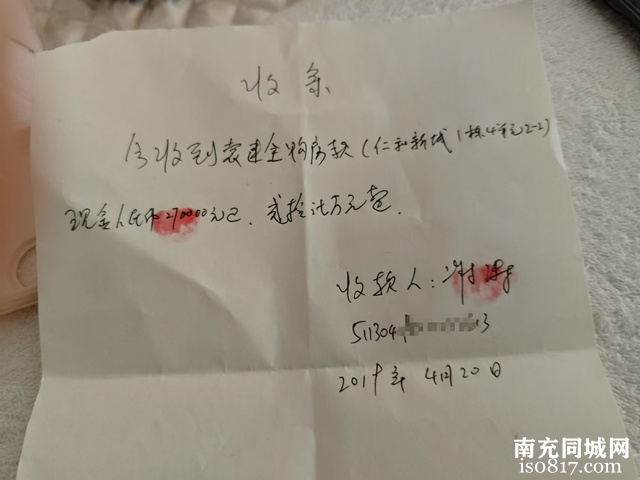 收条
今收到袁建全购房款(仁和新城1栋4单元2-2)
现金人民币270000元正.贰拾柒万元整.
收款人:
511304 13
2019年4月20日
南充同城网
iso817.com